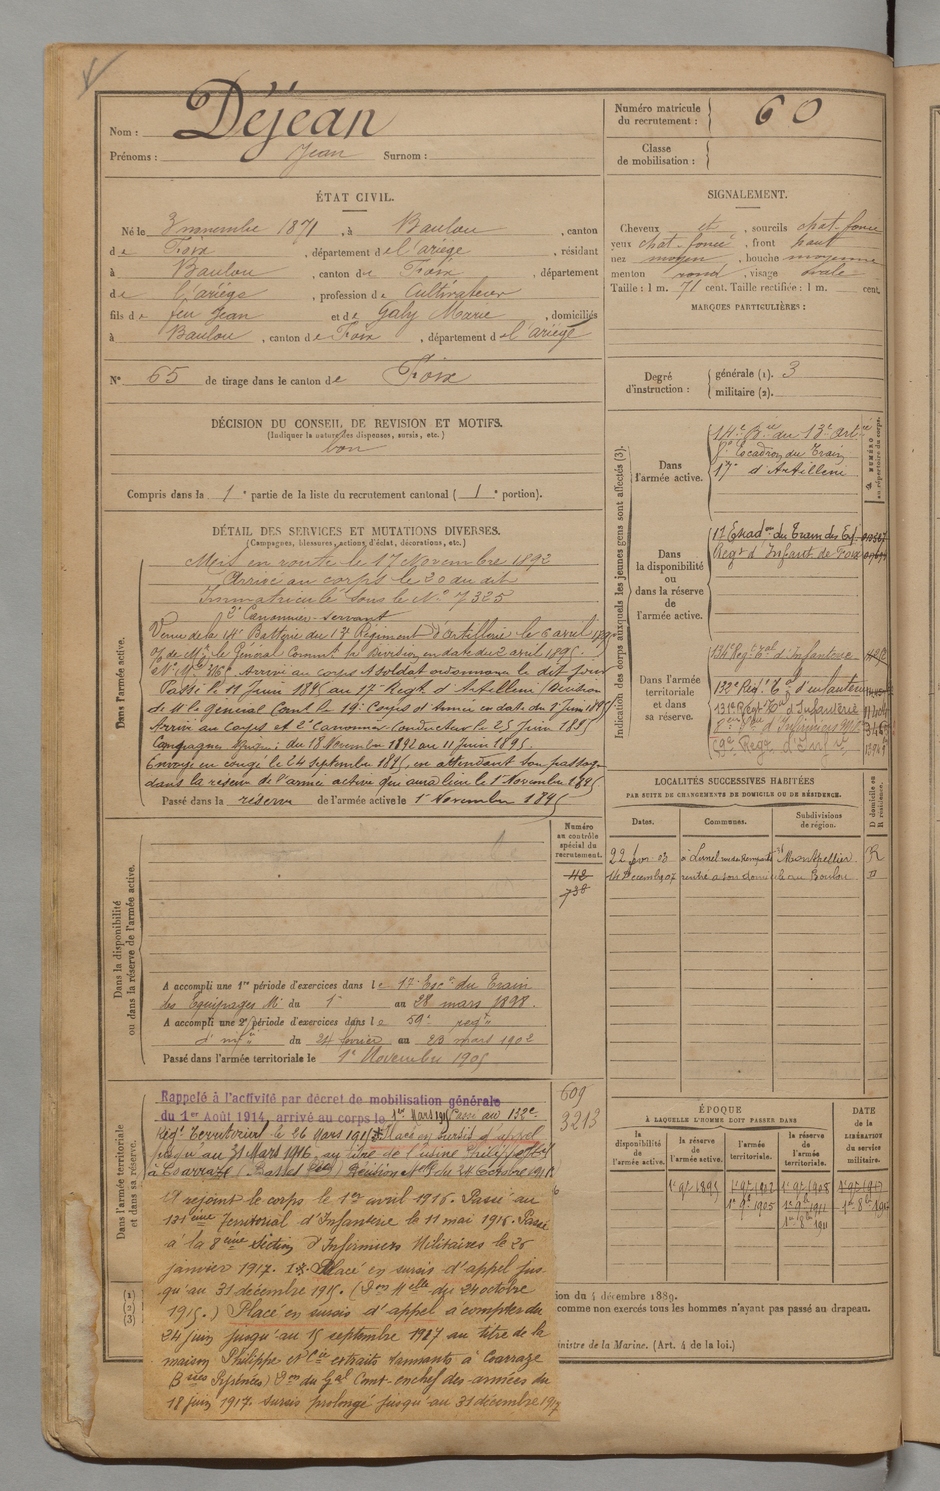 Nom : Déjean
Prénoms : Jean Surnom :
Numéro matricule du recrutement : 60
Classe de mobilisation :
ÉTAT CIVIL.
Né le 3 novembre 1871, à Baulou, canton
de Foix, département de l'ariège, résidant
à Baulou, canton de Foix, département
de l'ariège, profession de Cultivateur
fils de feu Jean et de Galy Marie, domiciliés
à Baulou, canton de Foix, département de l'ariège
N° 65 de tirage dans le canton de Foix
SIGNALEMENT.
Cheveux et, sourcils chat-foncé
yeux chat-foncé, front haut
nez moyen, bouche moyenne
menton rond, visage ovale
Taille : 1 m. 71 cent. Taille rectifiée : 1 m. cent.
MARQUES PARTICULIÈRES :
Degré d'instruction : générale (1). 3
militaire (2).
DÉCISION DU CONSEIL DE REVISION ET MOTIFS.
(Indiquer la nature des dispenses, sursis, etc.)
bon
Compris dans la 1e partie de la liste du recrutement cantonal (1e portion).
DÉTAIL DES SERVICES ET MUTATIONS DIVERSES.
(Campagnes, blessures, actions d'éclat, décorations, etc.)
Dans l'armée active.
Mis en route le 17 Novembre 1892
Arrivé au corps le 20 du dit
Immatriculé sous le N° 7325
2e Canonnier-servant
Venu de la 14e Batterie du 13e Régiment d'artillerie le 6 avril 1895
de Mr le Général Comt la Division en date du 2 avril 1895.
Arrivé au corps et soldat ordonnance le dit jour
Passé le 11 Juin 1895 au 17e Regt d'Artillerie (Décision
de M le général Comt le 17e Corps d'Armée en date du
Arrivé au corps et 2e Canonnier Conducteur le 25 Juin 1895
Campagnes : du 18 Novembre 1892 au 11 Juin 1895.
Envoyé en congé le 24 septembre 1895, en attendant son passage
dans la réserve de l'armée active qui aura lieu le 1er Novembre 1895
Passé dans la réserve de l'armée active le 1er Novembre 1895
Indication des corps auxquels les jeunes gens sont affectés (3).
NUMÉRO au répertoire du corps.
Dans l'armée active.
14e Bie du 13e Artie
Escadron du Train
17e d'Artillerie
Dans la disponibilité ou dans la réserve de l'armée active.
17 Escadon du Train des Eq.
Regt d'Infant de Foix
Dans l'armée territoriale et dans sa réserve.
134e Regt tal d'Infanterie
132e Regt Tal d'infanterie
131e Regt Tal d'Infanterie
8eme Son d'Infirmiers Mres
Regt d'Infie
LOCALITÉS SUCCESSIVES HABITÉES
PAR SUITE DE CHANGEMENTS DE DOMICILE OU DE RÉSIDENCE.
Dates. Communes. Subdivisions de région. D domicile ou R résidence.
22 fevr 03 à Lunel Montpellier R
14 Decembre 07 rentré à son domicile au Baulou D
Dans la disponibilité ou dans la réserve de l'armée active.
Numéro au contrôle spécial du recrutement.
42
738
A accompli une 1re période d'exercices dans le 17e Escon du Train
des Equipages Mres du 1er au 28 mars 1898.
A accompli une 2e période d'exercices dans le 59e regt
d'infie du 24 février au 23 mars 1902
Passé dans l'armée territoriale le 1er Novembre 1905
Dans l'armée territoriale et dans sa réserve.
609
3213
Rappelé à l'activité par décret de mobilisation générale
du 1er Août 1914, arrivé au corps le 1er Mars 1915 Passé au 132e
Régt Territorial le 26 Mars 1915 Placé en sursis d'appel
jusqu'au 31 Mars 1916 au titre de l'usine
à Coarraze (Basses Pées) Décision Melle du 24 Octobre 1915
Et rejoint le corps le 1er avril 1916. Passé au
131eme Territorial d'Infanterie le 11 mai 1916. Passé
à la 8eme Section d'Infirmiers Militaires le 26
janvier 1917. Placé en sursis d'appel jus-
qu'au 31 décembre 1915. (Don Melle du 24 octobre
1915.) Placé en sursis d'appel à compter du
24 juin jusqu'au 15 septembre 1917 au titre de la
maison Philippe et Cie extraits tannants à Coarraze
Bsses Pyrénées) Don du Gal Comt-en chef des armées du
18 juin 1917. sursis prolongé jusqu'au 31 décembre 1917
ÉPOQUE
À LAQUELLE L'HOMME DOIT PASSER DANS
la disponibilité de l'armée active. la réserve de l'armée active. l'armée territoriale. la réserve de l'armée territoriale.
DATE de la LIBÉRATION du service militaire.
1er 9bre 1895 1er 9bre 1902 1er 9bre 1908
1er 9bre 1905 1er 9bre 1911
ion du 4 décembre 1889.
comme non exercés tous les hommes n'ayant pas passé au drapeau.
inistre de la Marine. (Art. 4 de la loi.)
(1)
(2)
(3)